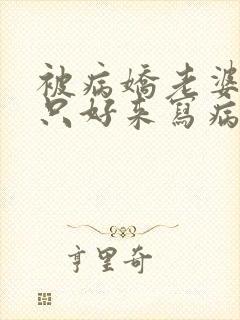 被病嬌老婆
只好来寫病
亨里奇